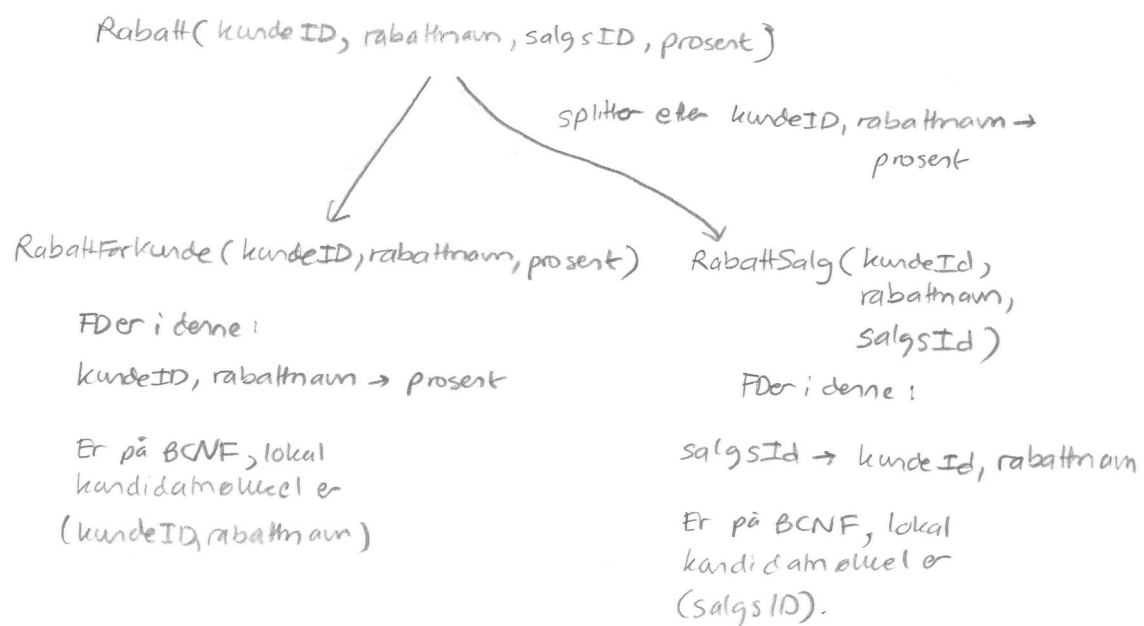 Rabatt( kundeID, rabattnavn, salgsID, prosent)
splitter etter kundeID, rabattnavn →
prosent
RabattForKunde(kundeID, rabattnavn, prosent)
FDer i denne:
kundeID, rabattnavn → prosent
Er på BCNF, lokal
kandidatnøkkel er
(kundeID, rabattnavn)
RabattSalg(kundeId,
rabattnavn,
salgsId)
FDer i denne:
salgsId → kundeId, rabattnavn
Er på BCNF, lokal
kandidatnøkkel er
(salgsID).